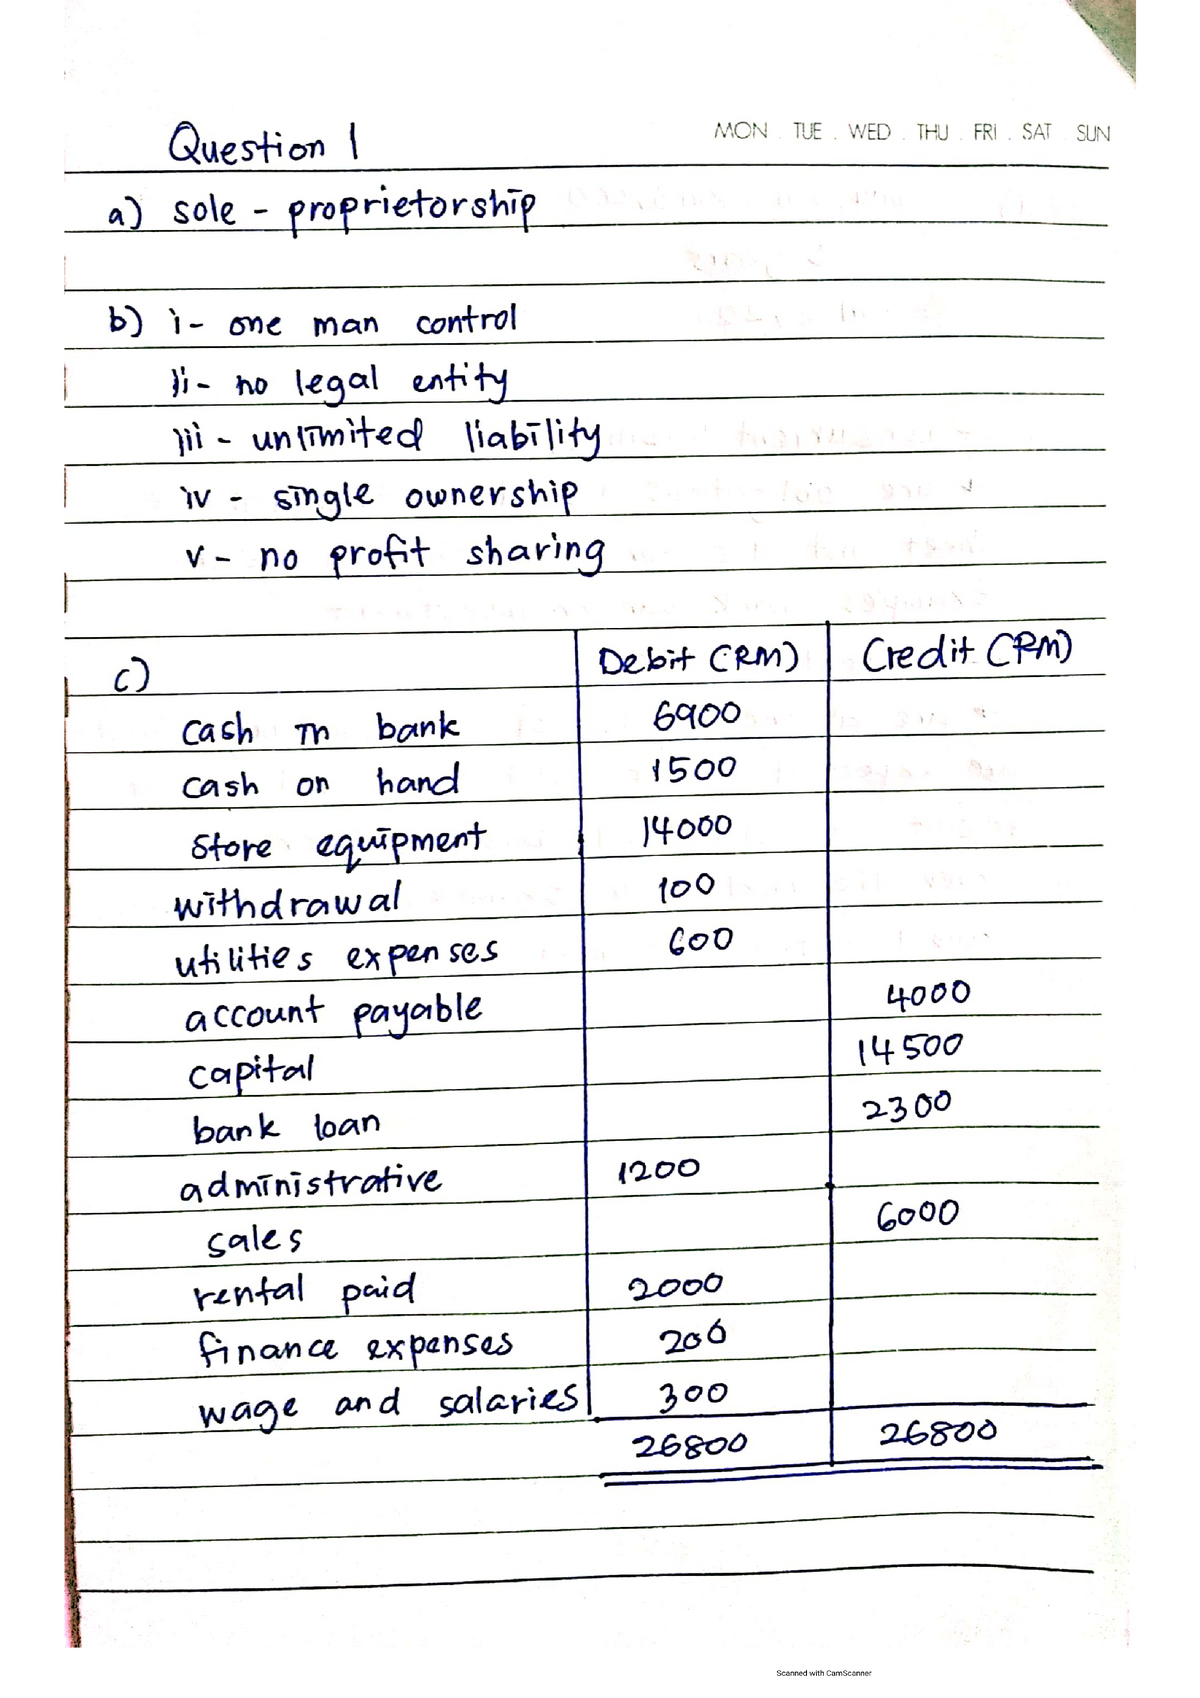 MON . TUE . WED . THU . FRI . SAT . SUN
Question 1
a) sole - proprietorship
b) i- one man control
ii- no legal entity
iii - unlimited liability
iv - single ownership
v - no profit sharing
c) Debit (RM) Credit (RM)
cash in bank 6900
cash on hand 1500
store equipment 14000
withdrawal 100
utilities expenses 600
account payable 4000
capital 14500
bank loan 2300
administrative 1200
sales 6000
rental paid 2000
finance expenses 200
wage and salaries 300
26800 26800
Scanned with CamScanner